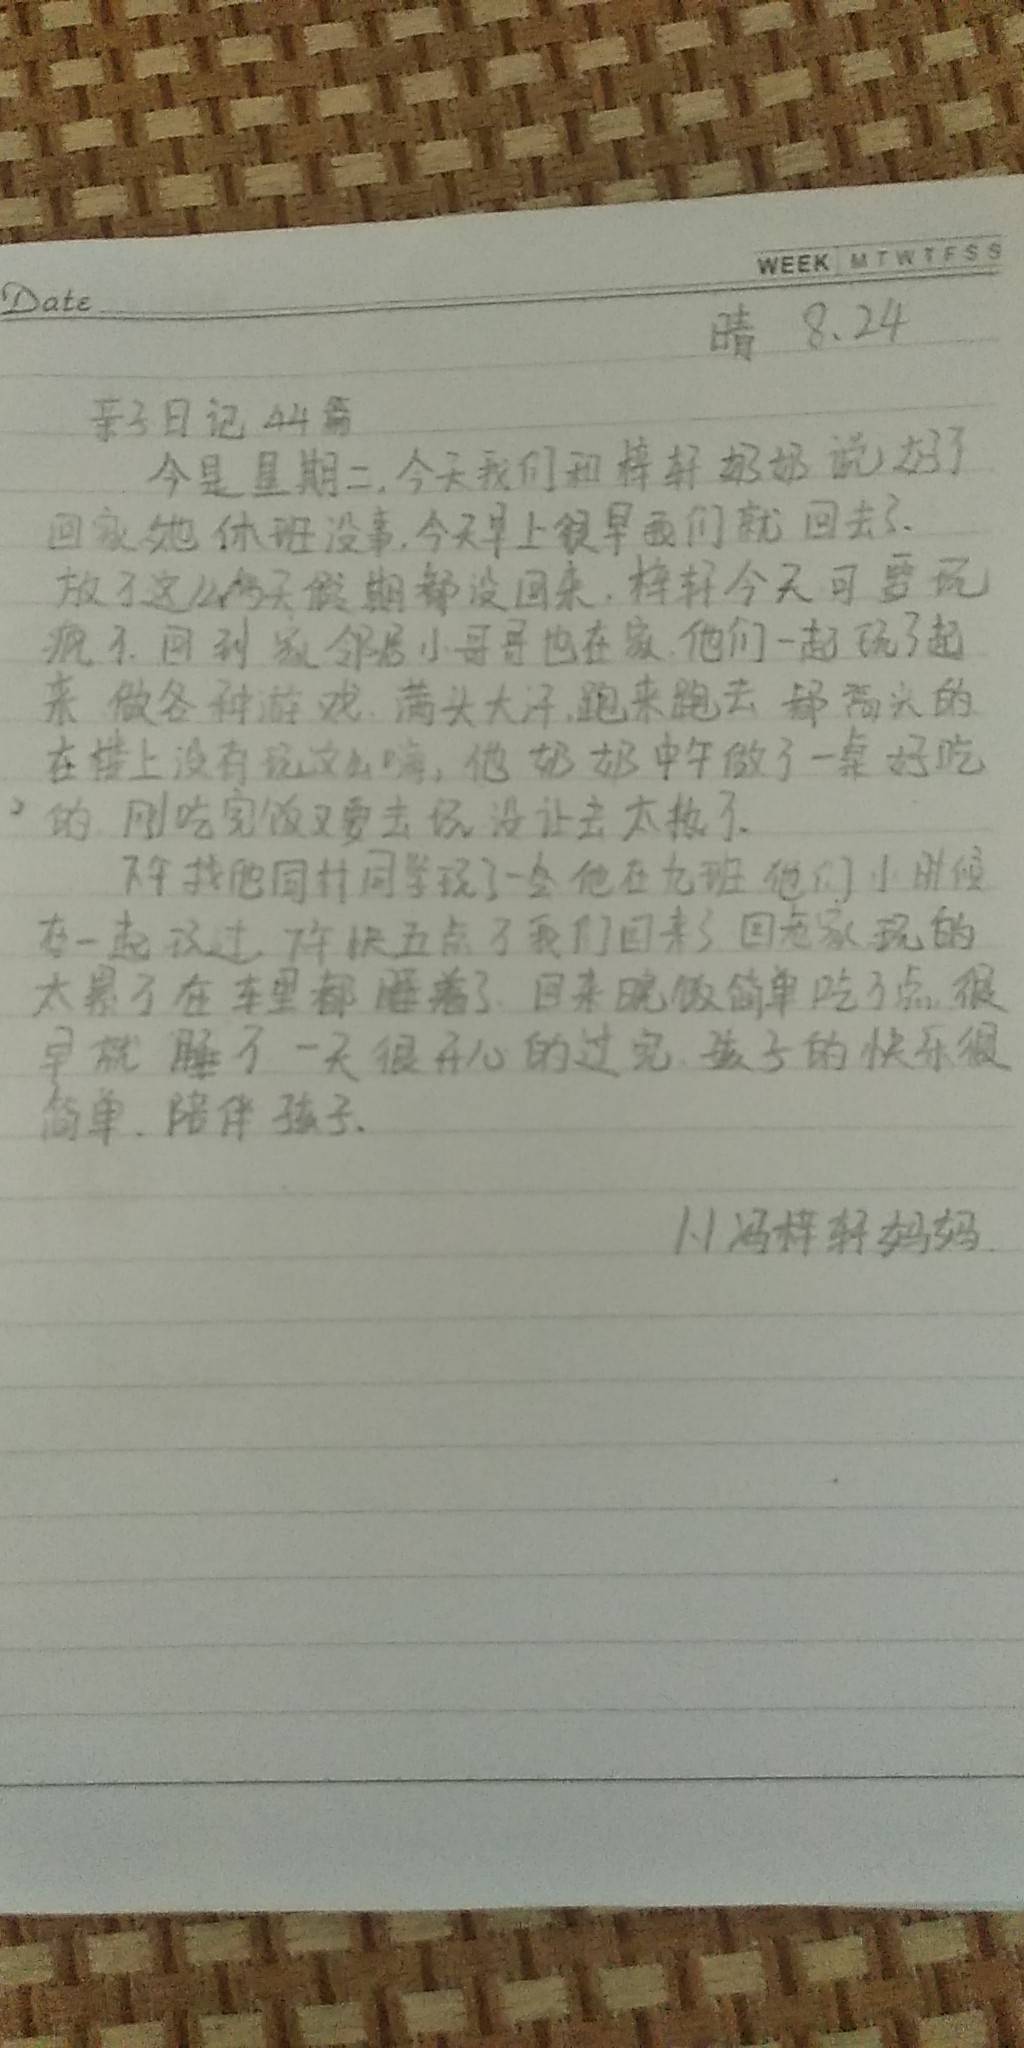 WEEK M T W T F S S
Date
晴 8.24
亲子日记44篇
今是星期二,今天我们和梓轩奶奶说好了
回家她休班没事,今天早上很早我们就回去了.
放了这么多天假期都没回来.梓轩今天可要玩
疯了.回到家邻居小哥哥也在家.他们一起玩了起
来 做各种游戏.满头大汗.跑来跑去 都满头的
在楼上没有玩这么嗨,他奶奶中午做了一桌好吃
的 刚吃完饭又要去玩 没让去太热了.
下午找他同村同学玩了一会他在九班 他们小时候
在一起玩过.下午快五点了我们回来了 回老家玩的
太累了在车里都睡着了.回来晚饭简单吃了点.很
早就睡了 一天很开心的过完.孩子的快乐很
简单.陪伴孩子.
1.1冯梓轩妈妈.